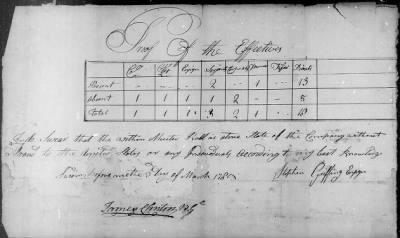 Proof of the Effectives
Capt Lieut Ensign Serjeants Corporals Drum Fifer Privates
Present - - - 2 - 1 - 13
Absent 1 1 1 1 2 - - 5
Total 1 1 1 3 2 1
that the within Muster Roll is a true State of the Company without
Fraud to the United States or any Individuals according to my best Knowledge
Sworn before me the 3 Day of March
Stephen Griffing
James Clinton